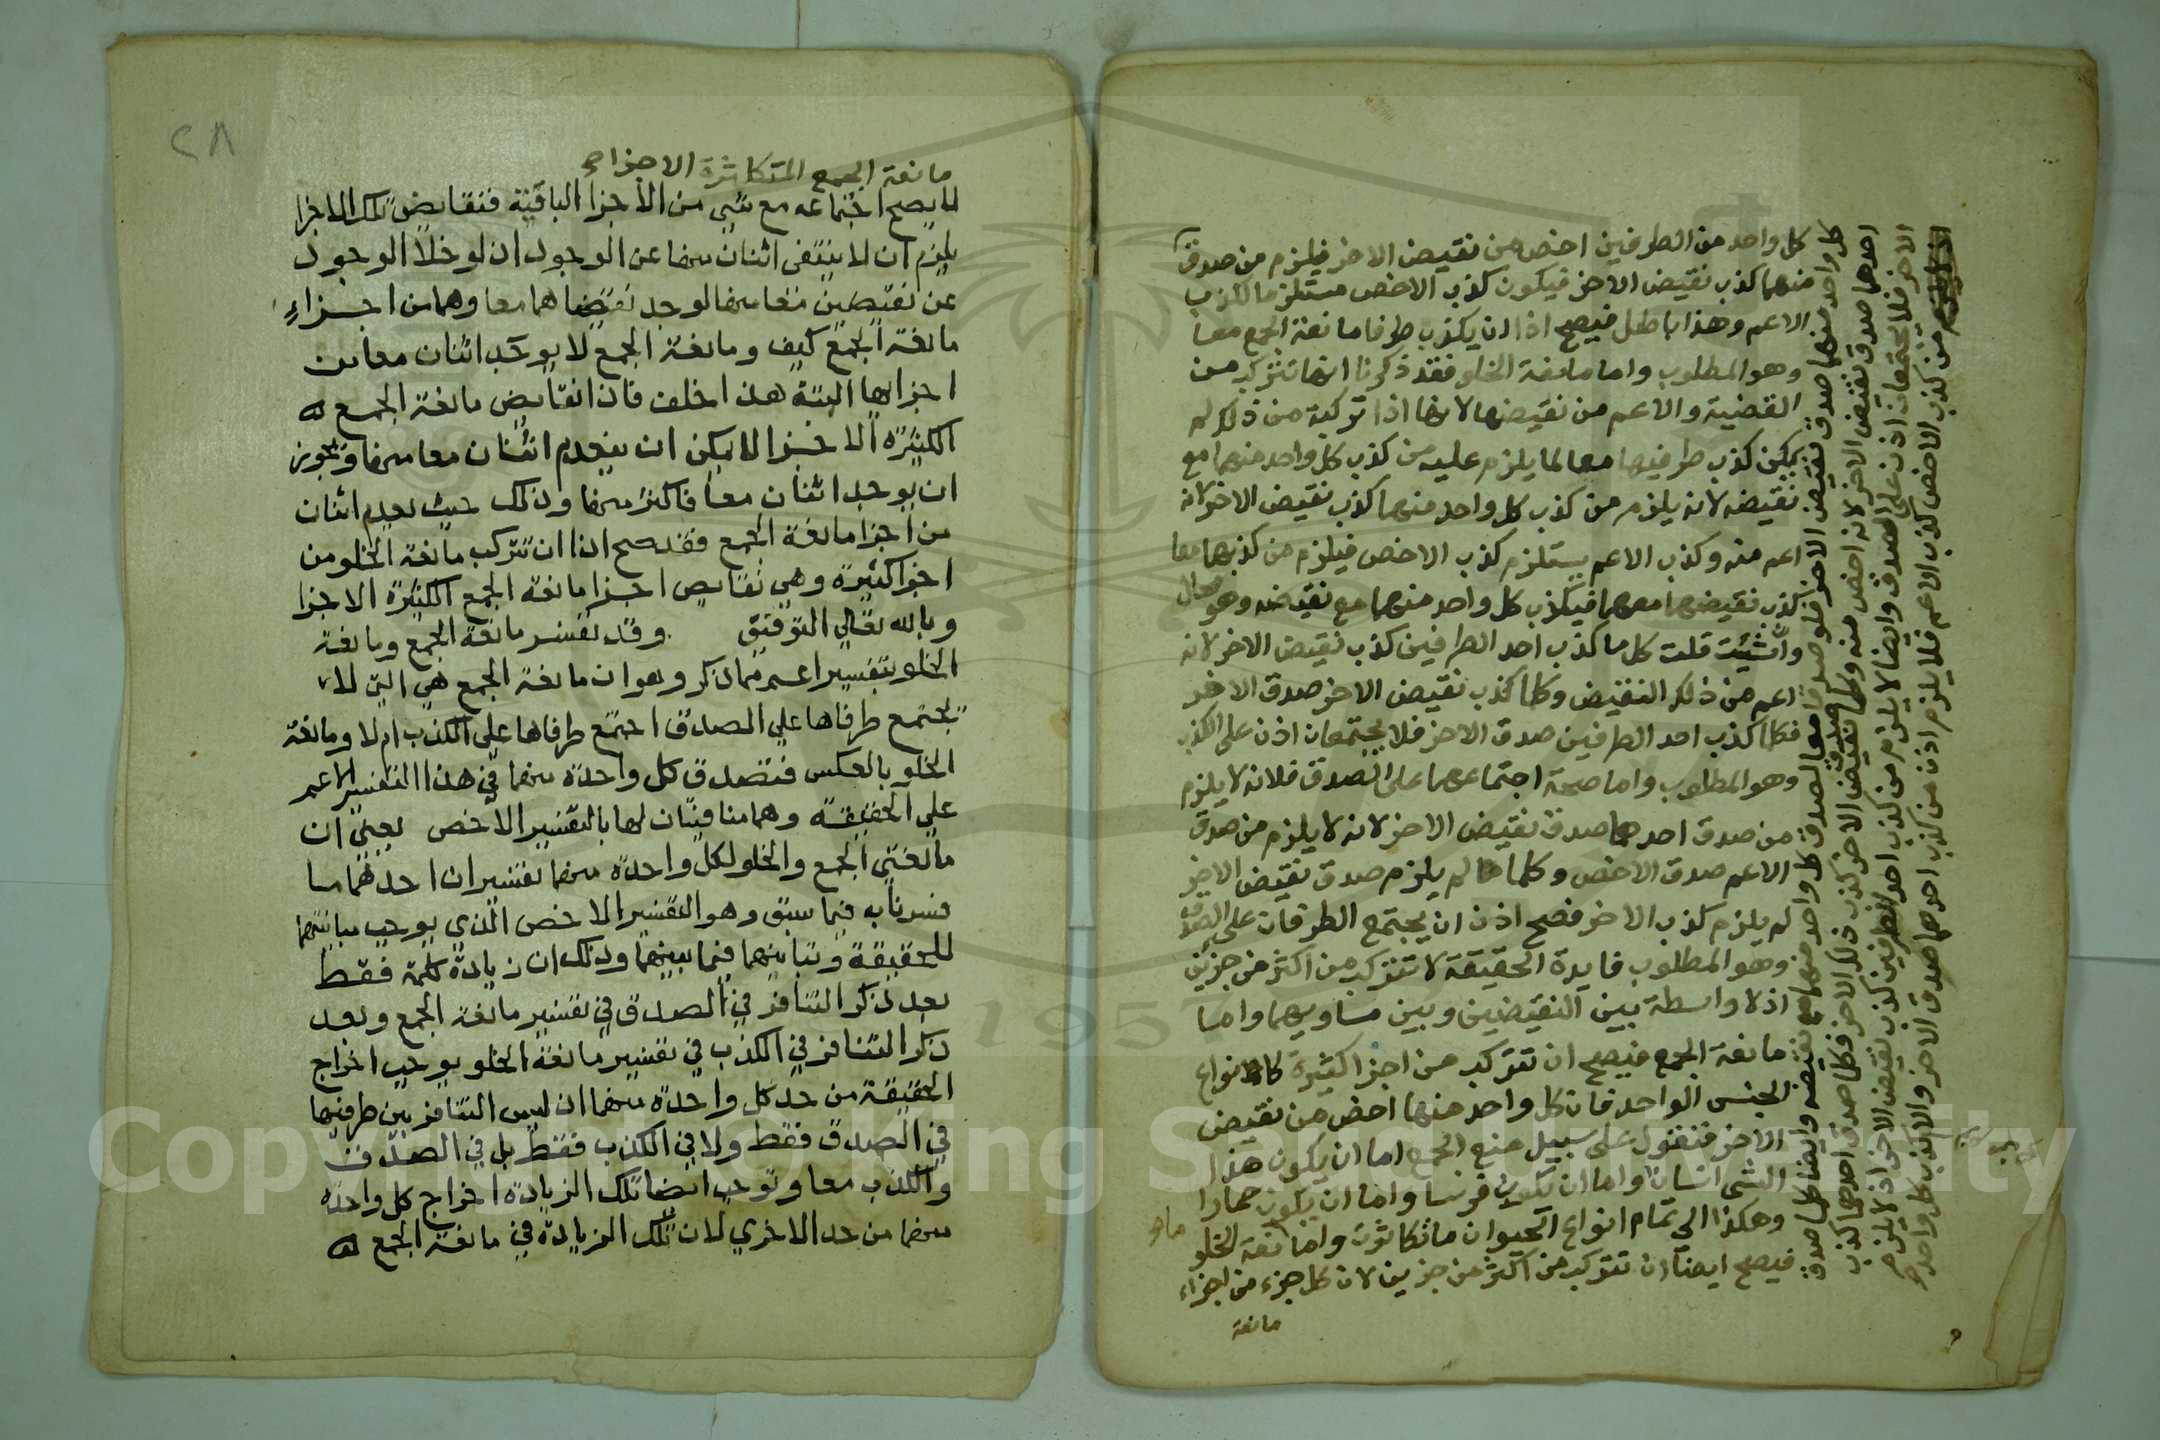 كل واحد من الطرفين اخص من نقيض الاخر فيلزم من صدق
منهما كذب نقيض الاخر فيكون كذب الاخص مستلزما لكذب
الاعم وهذا باطل فيصح اذا ان يكذب طرفا مانعة الجمع معا
وهو المطلوب واما مانعة الخلو فقد ذكرنا انها تتركب من
القضية والاعم من نقيضها لانها اذا تركبة من ذلك لم
يمكن كذب طرفيها معا لما يلزم عليه من كذب كل واحد منهما مع
نقيضه لانه يلزم من كذب كل واحد منهما كذب نقيض الاخر لانه
اعم منه وكذب الاعم يستلزم كذب الاخص فيلزم من كذبهما معا
كذب نقيضهما معهما فيكذب كل واحد منهما مع نقيضه وهو محال
وان شيت قلت كل ما كذب احد الطرفين كذب نقيض الاخر لانه
اعم من ذلك النقيض وكلما كذب نقيض الاخر صدق الاخر
فكلما كذب احد الطرفين صدق الاخر فلا يجتمعان اذن على الكذب
وهو المطلوب واما صحة اجتماعهما على الصدق فلانه لا يلزم
من صدق احدهما صدق نقيض الاخر لانه لا يلزم من صدق
الاعم صدق الاخص وكلما لم يلزم صدق نقيض الاخر
لم يلزم كذب الاخر فصح اذن ان يجتمع الطرفان على الصدق
وهو المطلوب فايدة الحقيقة لا تتركب من اكثر من جزين
اذ لا واسطة بين النقيضين وبين مساويهما واما
مانعة الجمع فيصح ان تتركب من اجزا كثيرة كالانواع
الجنس الواحد فان كل واحد منها اخص من نقيض
الاخر فنقول على سبيل منع الجمع اما ان يكون هذا
الشي انسانا واما ان يكون فرسا واما ان يكون حمارا
وهكذا الى تمام انواع الحيوان ما تكاثرت واما مانعة الخلو
فيصح ايضا ان تتركب من اكثر من جزين لان كل جزء من اجزاء
مانعة
كل واحد منهما صدق نقيض الاخر فلو صدقا معا لصدق كل واحد منهما مع نقيضه وايضا كلما صدق
احدهما صدق نقيض الاخر لانه اخص منه وكلما صدق نقيض الاخر كذب ذلك الاخر فكلما صدق احدهما كذب
الاخر فلا يجتمعان اذن على الصدق وايضا لا يلزم من كذب احد الطرفين كذب نقيض الاخر اذ لا يلزم
من كذب الاخص كذب الاعم فلا يلزم اذن من كذب احدهما صدق الاخر والا كذب كل واحد
٢٨
مانعة الجمع المتكاثرة الاجزاء
لا يصح اجتماعه مع شي من الاجزا الباقية فنقايض تلك الاجزا
يلزم ان لا ينتفى اثنان منها عن الوجود اذ لو خلا الوجود
عن نقيضين معا منها لوجد نقيضاهما معا وهما من اجزاء
مانعة الجمع كيف ومانعة الجمع لا يوجد اثنان معا من
اجزايها البتة هذا خلف فاذا نقايض مانعة الجمع
الكثيرة الاجزا لا يمكن ان ينعدم اثنان معا منها ويجوز
ان يوجد اثنان معا فاكثر منها وذلك حيث يعدم اثنان
من اجزا مانعة الجمع فقد صح اذا ان تتركب مانعة الخلو من
اجزا كثيرة وهي نقايض اجزا مانعة الجمع الكثيرة الاجزا
وبالله تعالي التوفيق وقد تفسر مانعة الجمع ومانعة
الخلو بتفسير اعم مما ذكر وهو ان مانعة الجمع هي التي لا
يجتمع طرفاها علي الصدق اجتمع طرفاها علي الكذب ام لا ومانعة
الخلو بالعكس فتصدق كل واحدة منهما في هذا التفسير الاعم
علي الحقيقة وهما منافيتان لها بالتفسير الاخص يعني ان
مانعتي الجمع والخلو لكل واحدة منهما تفسيران احدهما ما
فسرنا به فيما سبق وهو التفسير الاخص الذي يوجب مباينتهما
للحقيقة وتباينهما فيما بينهما وذلك ان زيادة كلمة فقط
بعد ذكر التنافر في الصدق في تفسير مانعة الجمع وبعد
ذكر التنافر في الكذب في تفسير مانعة الخلو يوجب اخراج
الحقيقة من حد كل واحدة منهما اذ ليس التنافر بين طرفيها
في الصدق فقط ولا في الكذب فقط بل في الصدق
والكذب معا وتوجب ايضا تلك الزيادة اخراج كل واحدة
منهما من حد الاخري لان تلك الزيادة في مانعة الجمع